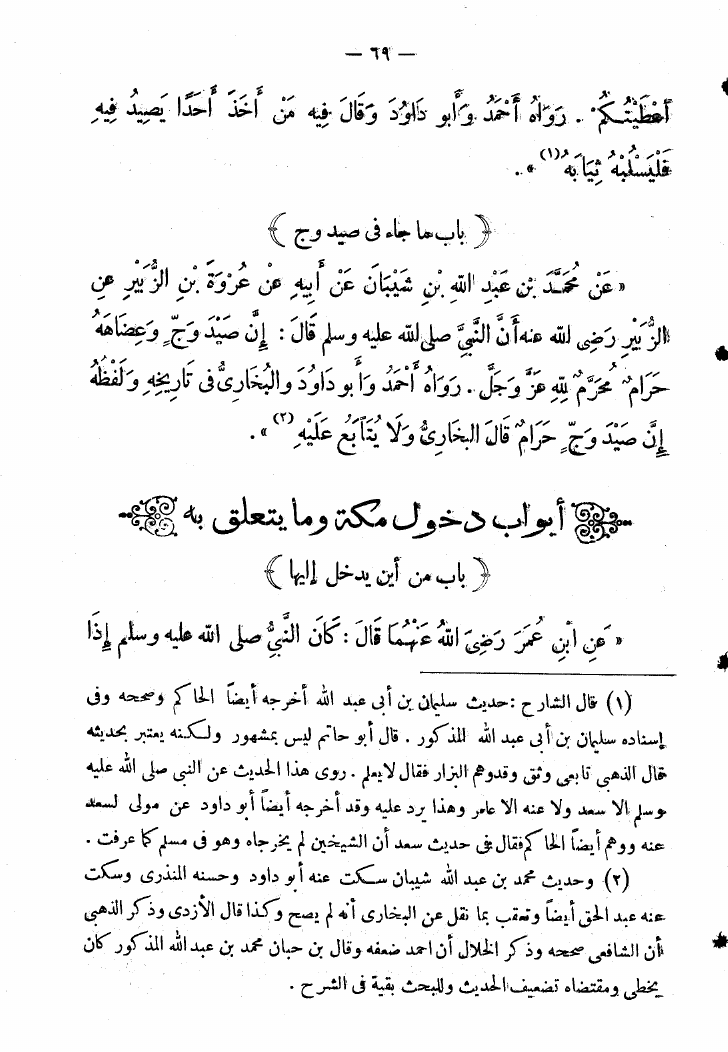 — ٦٩ —
أَعْطَيْتُكُمْ . رَوَاهُ أَحْمَدُ وَأَبو دَاوُدَ وَقَالَ فِيه مَنْ أَخَذَ أَحَدًا يَصِيدُ فِيهِ
فَلْيَسْلُبْهُ ثِيَابَهُ (١) » .
﴿ باب ما جاء فى صيد وج ﴾
« عَنْ مُحَمَّدَ بْنِ عَبْدِ اللهِ بْنِ شَيْبَانَ عَنْ أَبِيهِ عَنْ عُرْوَةَ بْنِ الزُّبَيْرِ عَنِ
الزُّبَيْرِ رَضِىَ اللهُ عنه أَنَّ النَّبِىَّ صلى الله عليه وسلم قَالَ : إِنَّ صَيْدَ وَجٍّ وَعِضَاهَهُ
حَرَامٌ مُحَرَّمٌ لِلّٰهِ عَزَّ وَجَلَّ . رَوَاهُ أَحْمَدُ وَأَبو دَاوُدَ والبُخَارِىُّ فى تَارِيخِهِ وَلَفْظُهُ
إِنَّ صَيْدَ وَجٍّ حَرَامٌ قَالَ البخَارِىُّ وَلَا يُتَابَعُ عَلَيْهِ (٢) » .
أبواب دخول مكة وما يتعلق به
﴿ باب من أين يدخل إليها ﴾
« عَنِ ابْنِ عُمَرَ رَضِىَ اللهُ عَنْهُمَا قَالَ : كَانَ النَّبِىُّ صلى الله عليه وسلم إِذَا
(١) قال الشارح : حديث سليمان بن أبى عبد الله أخرجه أيضاً الحاكم وصححه وفى
إسناده سليمان بن أبى عبد الله المذكور . قال أبو حاتم ليس بمشهور ولكنه يعتبر بحديثه
قال الذهبى تابعى وثق وقد وهم البزار فقال لا يعلم . روى هذا الحديث عن النبى صلى الله عليه
وسلم إلا سعد ولا عنه الا عامر وهذا يرد عليه وقد أخرجه أيضاً أبو داود عن مولى لسعد
عنه ووهم أيضاً الحاكم فقال فى حديث سعد أن الشيخين لم يخرجاه وهو فى مسلم كما عرفت .
(٢) وحديث محمد بن عبد الله شيبان سكت عنه أبو داود وحسنه المنذرى وسكت
عنه عبد الحق أيضاً وتعقب بما نقل عن البخارى أنه لم يصح وكذا قال الأزدى وذكر الذهبى
أن الشافعى صححه وذكر الخلال أن احمد ضعفه وقال بن حبان محمد بن عبد الله المذكور كان
يخطى ومقتضاه تضعيف الحديث وللبحث بقية فى الشرح .